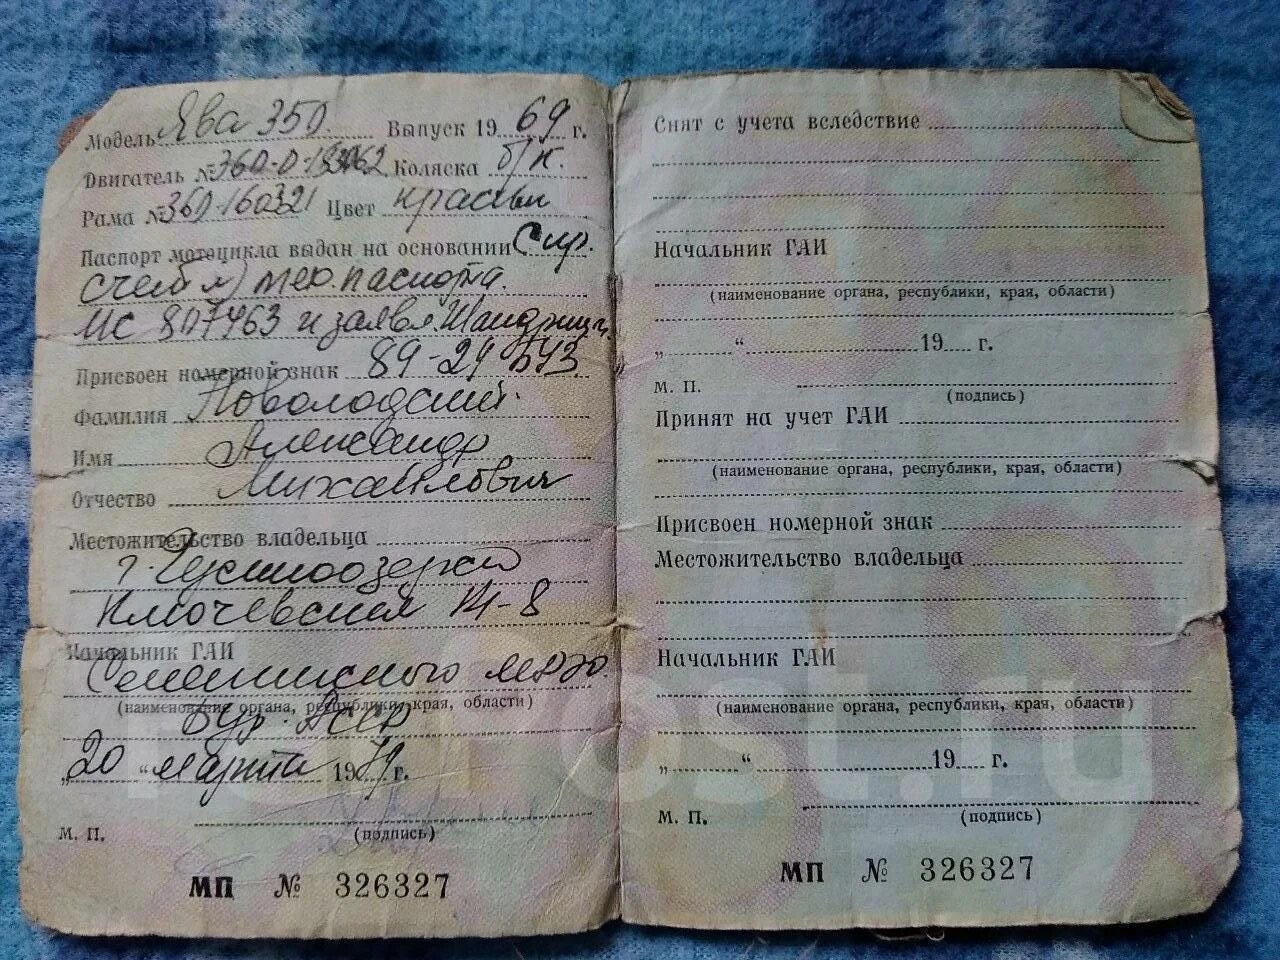 Модель Ява 350. Выпуск 1969 г.
Двигатель № Коляска б/к.
Рама № 360-160321 Цвет красный
Паспорт мотоцикла выдан на основании
тех.паспорта.
МС 807463 и заявл.
Присвоен номерной знак 89-29 БУЗ
Фамилия
Имя Александр
Отчество Михайлович
Местожительство владельца
г. Гусиноозерск
Ключевская 14-8
Начальник ГАИ
(наименование органа, республики, края, области)
Бур. АССР
„20“ марта 1979 г.
М. П. (подпись)
МП № 326327
Снят с учета вследствие
Начальник ГАИ
(наименование органа, республики, края, области)
„ “ 19 г.
М. П.
(подпись)
Принят на учет ГАИ
(наименование органа, республики, края, области)
Присвоен номерной знак
Местожительство владельца
Начальник ГАИ
(наименование органа, республики, края, области)
„ “ 19 г.
М. П.
(подпись)
МП № 326327